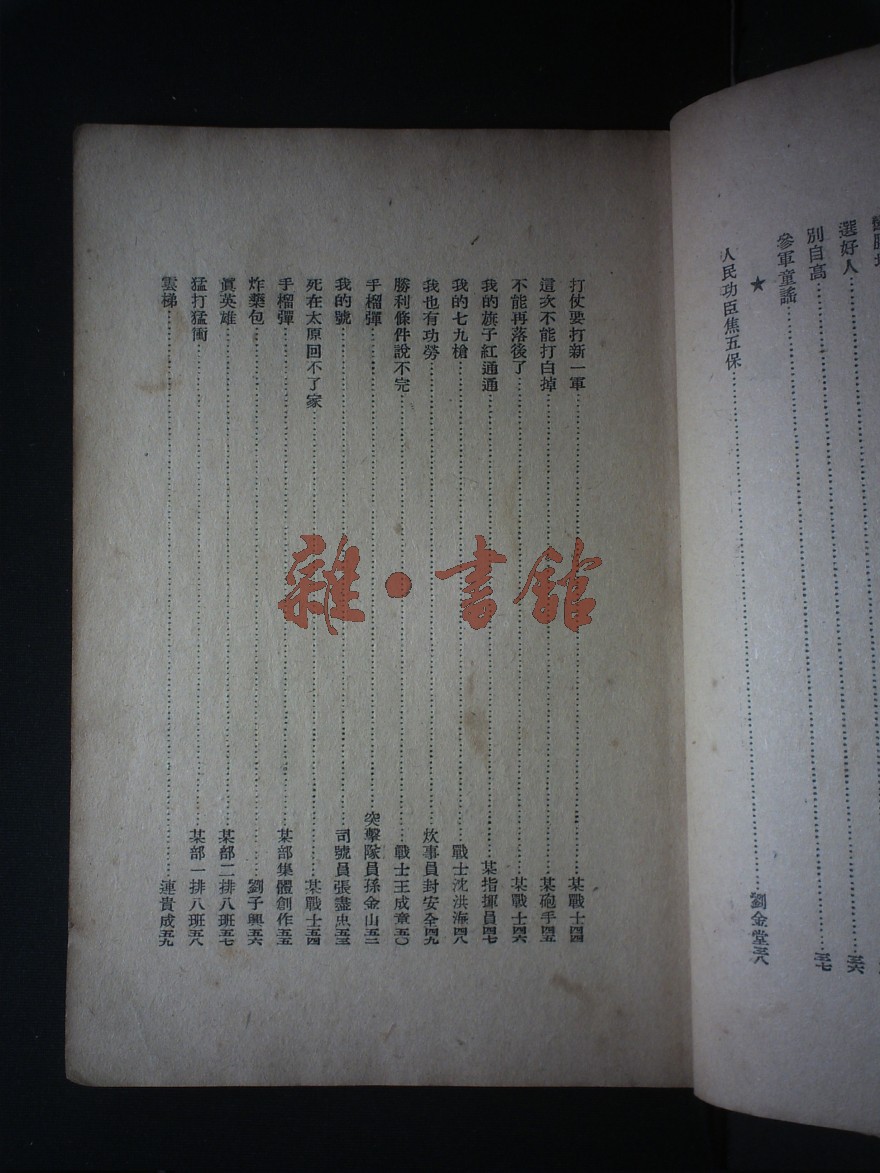 選好人……三六
別自高……三七
參軍童謠
★
人民功臣焦五保……劉金堂三八
打仗要打新一軍……某戰士四四
這次不能打白掉……某砲手四五
不能再落後了……某戰士四六
我的旗子紅通通……某指揮員四七
我的七九槍……戰士沈洪海四八
我也有功勞……炊事員封安全四九
勝利條件說不完……戰士王成章五〇
手榴彈……突擊隊員孫金山五二
我的號……司號員張盡忠五三
死在太原回不了家……某戰士五四
手榴彈……某部集體創作五五
炸藥包……劉子興五六
眞英雄……某部二排八班五七
猛打猛衝……某部一排八班五八
雲梯……連貴成五九
雜·書館